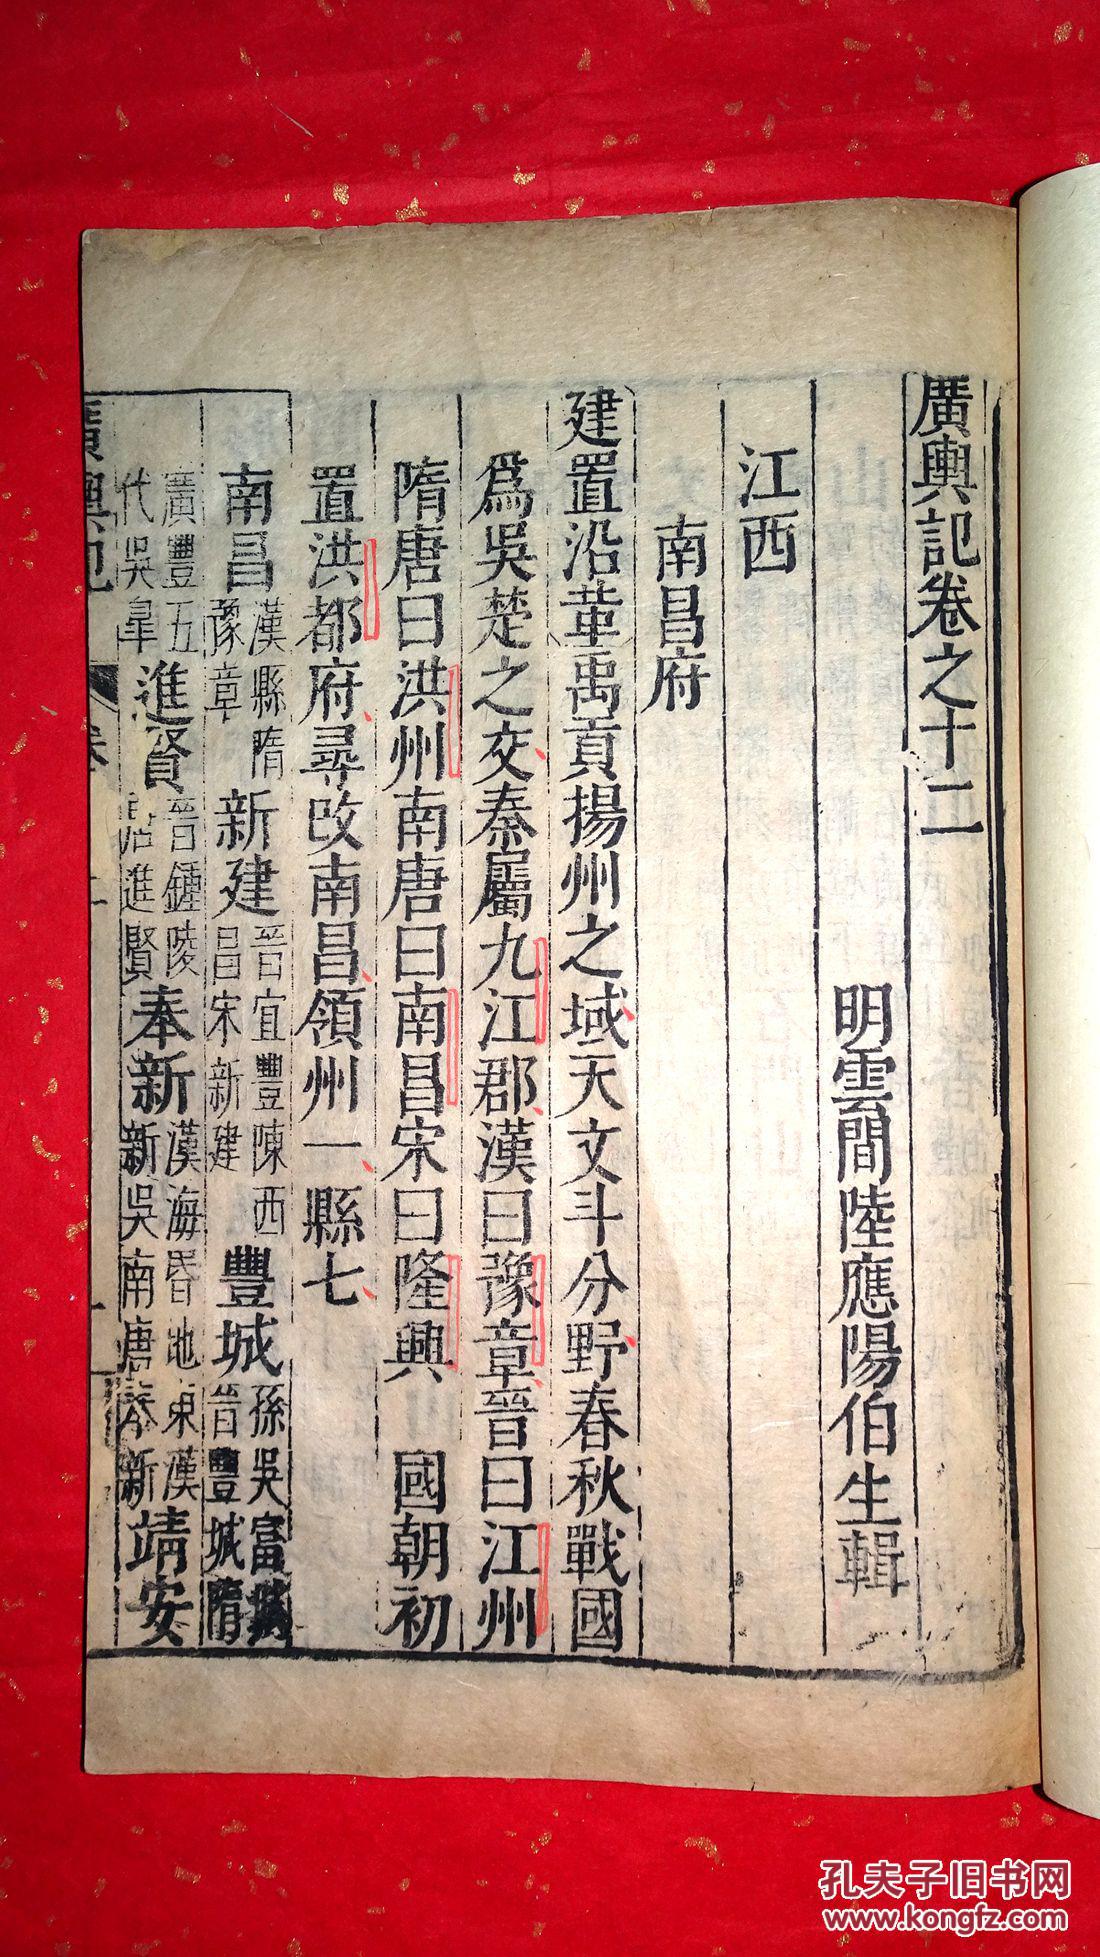 廣輿記卷之十二
明雲間陸應陽伯生輯
江西
南昌府
建置沿革禹貢揚州之域天文斗分野春秋戰國
爲吳楚之交秦屬九江郡漢曰豫章晉曰江州
隋唐曰洪州南唐曰南昌宋曰隆興 國朝初
置洪都府尋改南昌領州一縣七
南昌漢縣隋豫章新建晉宜豐陳西昌宋新建豐城孫吳富城晉豐城隋
廣豐五代吳臯進賢晉鍾陵唐進賢奉新漢海昏地東漢新吳南唐奉新靖安
廣輿記
孔夫子旧书网
www.kongfz.com